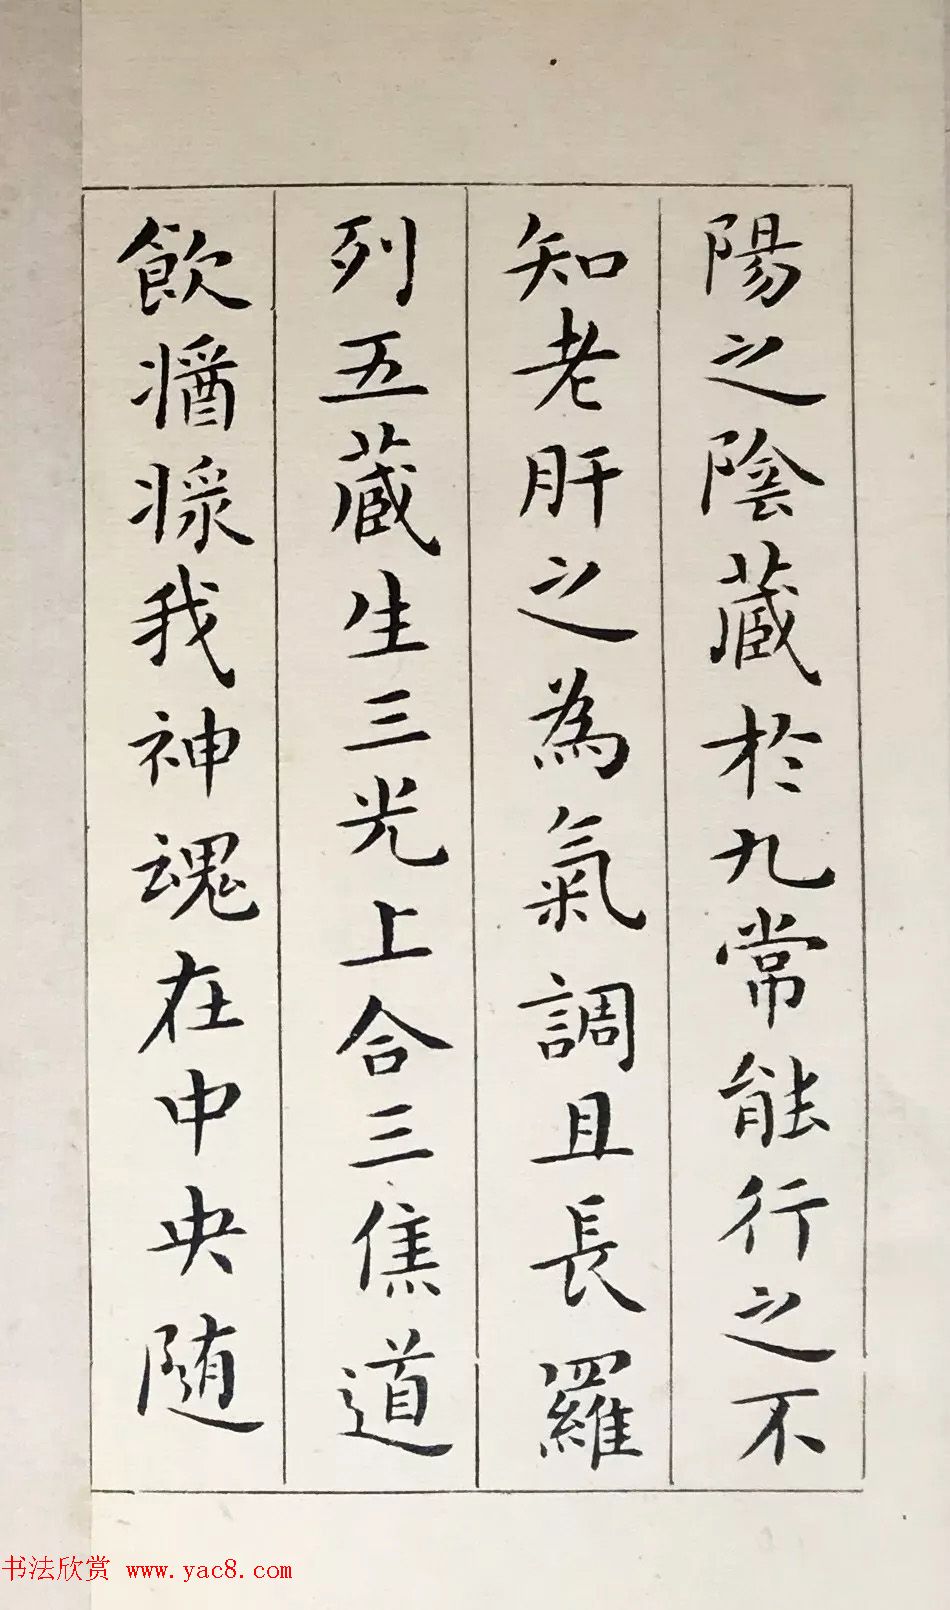 陽之陰藏於九常能行之不
知老肝之為氣調且長羅
列五藏生三光上合三焦道
飲醬漿我神魂在中央随
书法欣赏 www.yac8.com